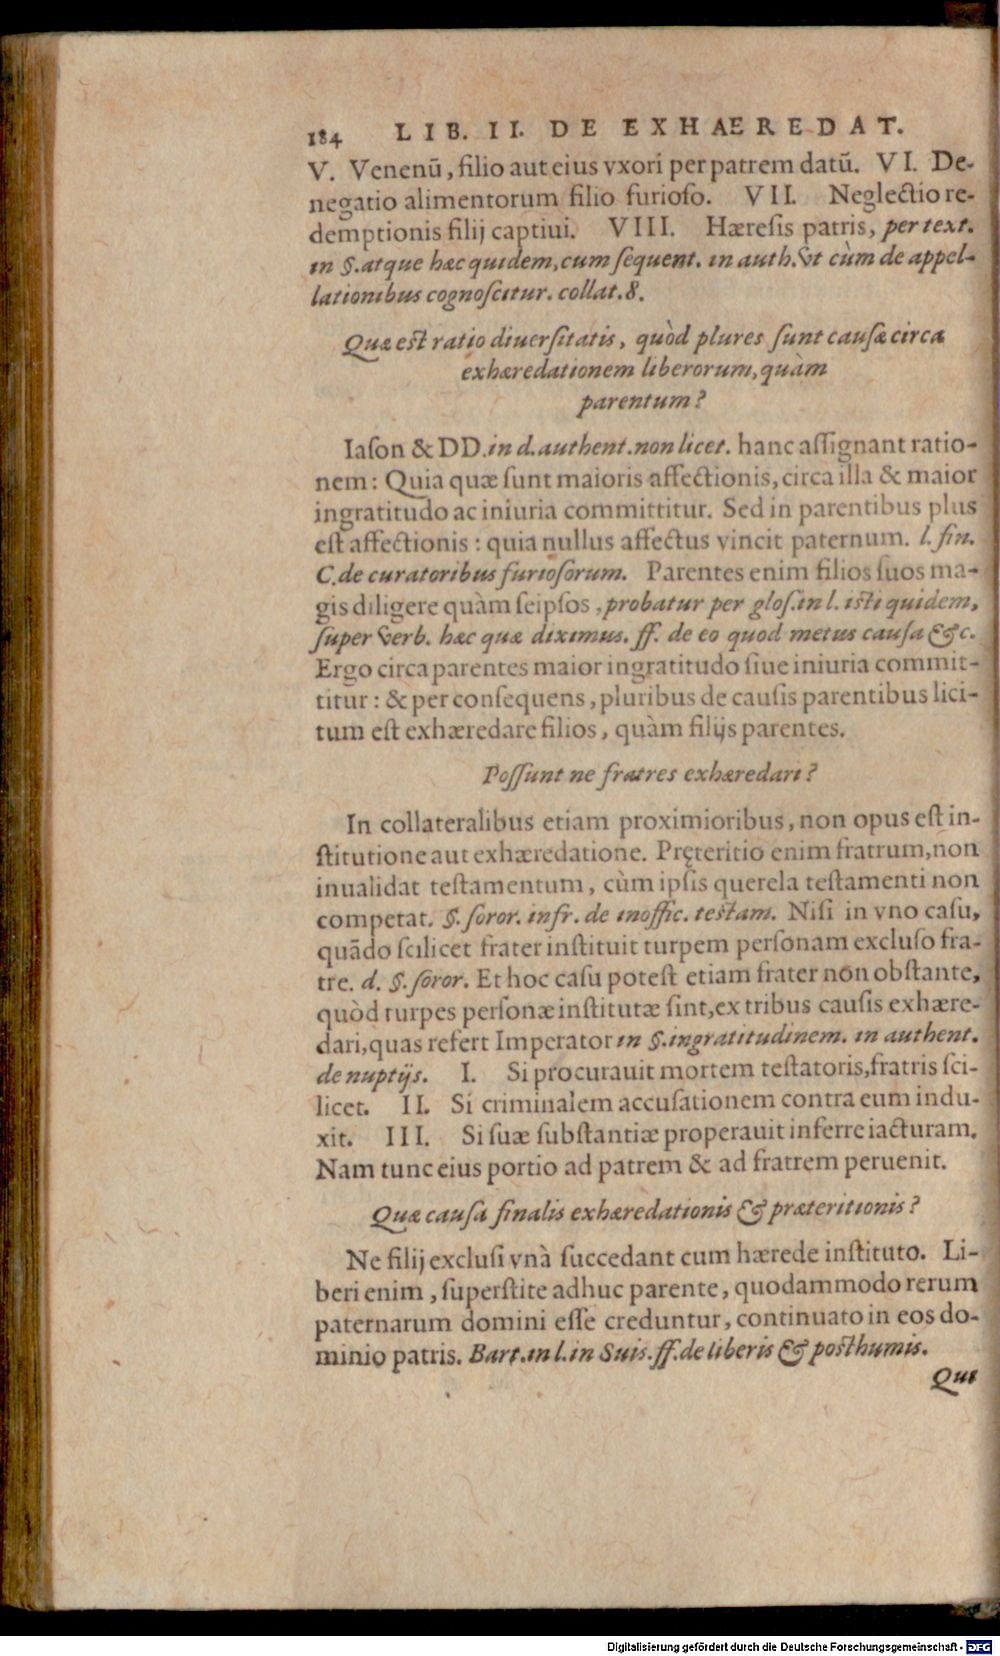 184 LIB. II. DE EXHAEREDAT.
V. Venenū, filio aut eius vxori per patrem datū. VI. De-
negatio alimentorum filio furioso. VII. Neglectio re-
demptionis filij captiui. VIII. Hæresis patris, per text.
in §. atque hæc quidem, cum sequent. in auth. vt cùm de appel-
lationibus cognoscitur. collat. 8.
Quæ est ratio diuersitatis, quòd plures sunt causæ circa
exhæredationem liberorum, quàm
parentum?
Iason & DD. in d. authent. non licet. hanc assignant ratio-
nem: Quia quæ sunt maioris affectionis, circa illa & maior
ingratitudo ac iniuria committitur. Sed in parentibus plus
est affectionis: quia nullus affectus vincit paternum. l. fin.
C. de curatoribus furiosorum. Parentes enim filios suos ma-
gis diligere quàm seipsos, probatur per glos. in l. isti quidem,
super verb. hæc quæ diximus. ff. de eo quod metus causa &c.
Ergo circa parentes maior ingratitudo siue iniuria commit-
titur: & per consequens, pluribus de causis parentibus lici-
tum est exhæredare filios, quàm filijs parentes.
Possunt ne fratres exhæredari?
In collateralibus etiam proximioribus, non opus est in-
stitutione aut exhæredatione. Pręteritio enim fratrum, non
inualidat testamentum, cùm ipsis querela testamenti non
competat. §. soror. infr. de inoffic. testam. Nisi in vno casu,
quādo scilicet frater instituit turpem personam excluso fra-
tre. d. §. soror. Et hoc casu potest etiam frater non obstante,
quòd turpes personæ institutæ sint, ex tribus causis exhære-
dari, quas refert Imperator in §. ingratitudinem. in authent.
de nuptijs. I. Si procurauit mortem testatoris, fratris sci-
licet. II. Si criminalem accusationem contra eum indu-
xit. III. Si suæ substantiæ properauit inferre iacturam.
Nam tunc eius portio ad patrem & ad fratrem peruenit.
Quæ causa finalis exhæredationis & præteritionis?
Ne filij exclusi vnà succedant cum hærede instituto. Li-
beri enim, superstite adhuc parente, quodammodo rerum
paternarum domini esse creduntur, continuato in eos do-
minio patris. Bart. in l. in Suis. ff. de liberis & posthumis.
Qui
Digitalisierung gefördert durch die Deutsche Forschungsgemeinschaft - DFG